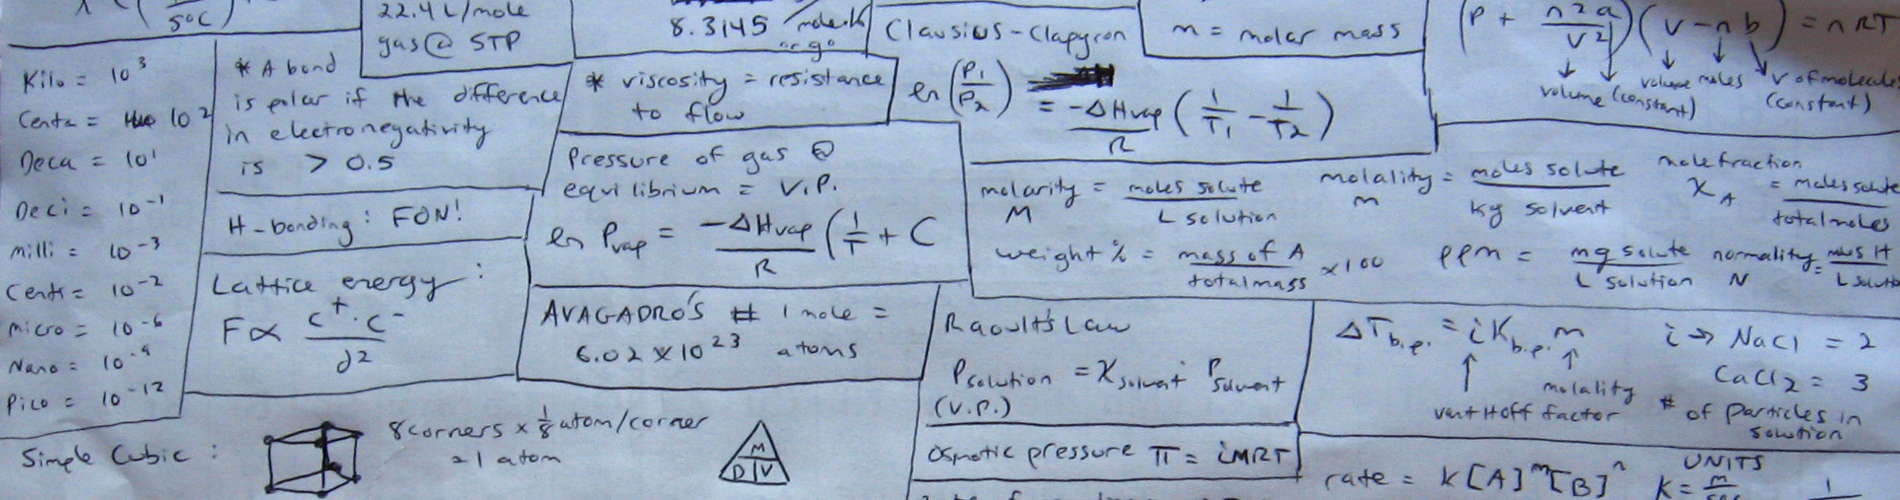 5°C
22.4 L/mole
gas @ STP
8.3145
Clausius-Clapyron
m = molar mass
(P + n²a/V²)(V - nb) = nRT
volume (constant)
volume moles
V of molecule
(constant)
Kilo = 10³
Centa = 10²
Deca = 10¹
Deci = 10⁻¹
milli = 10⁻³
Centi = 10⁻²
micro = 10⁻⁶
Nano = 10⁻⁹
Pico = 10⁻¹²
* A bond
is polar if the difference
in electronegativity
is > 0.5
H-bonding: FON!
Lattice energy:
F∝ c⁺·c⁻/d²
* viscosity = resistance
to flow
Pressure of gas @
equilibrium = V.P.
ln Pvap = -ΔHvap/R (1/T + C
AVAGADRO'S # 1 mole =
6.02 x 10²³ atoms
ln(P₁/P₂) = -ΔHvap/R (1/T₁ - 1/T₂)
molarity = moles solute/L solution
M
molality = moles solute/kg solvent
m
mole fraction
X_A = moles solute/total moles
weight % = mass of A/total mass x100
ppm = mg solute/L solution
normality = H/L
N
Raoult's Law
Psolution = Xsolvent · Psolvent
(V.P.)
Osmotic pressure π = iMRT
ΔTb.p. = iKb.p. m
molality
vant Hoff factor
i → NaCl = 2
CaCl₂ = 3
# of particles in
solution
Simple Cubic:
8 corners x 1/8 atom/corner
= 1 atom
M
D V
rate = K[A]ᵐ[B]ⁿ
UNITS
K =